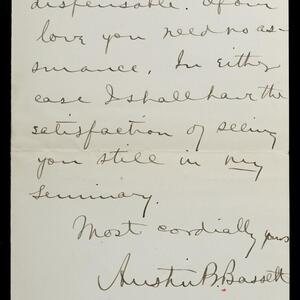 dispensable. Of our
love you need no as-
surance. In either
case I shall have the
satisfaction of seeing
you still in my
Seminary.
Most cordially yours
Austin B. Bassett